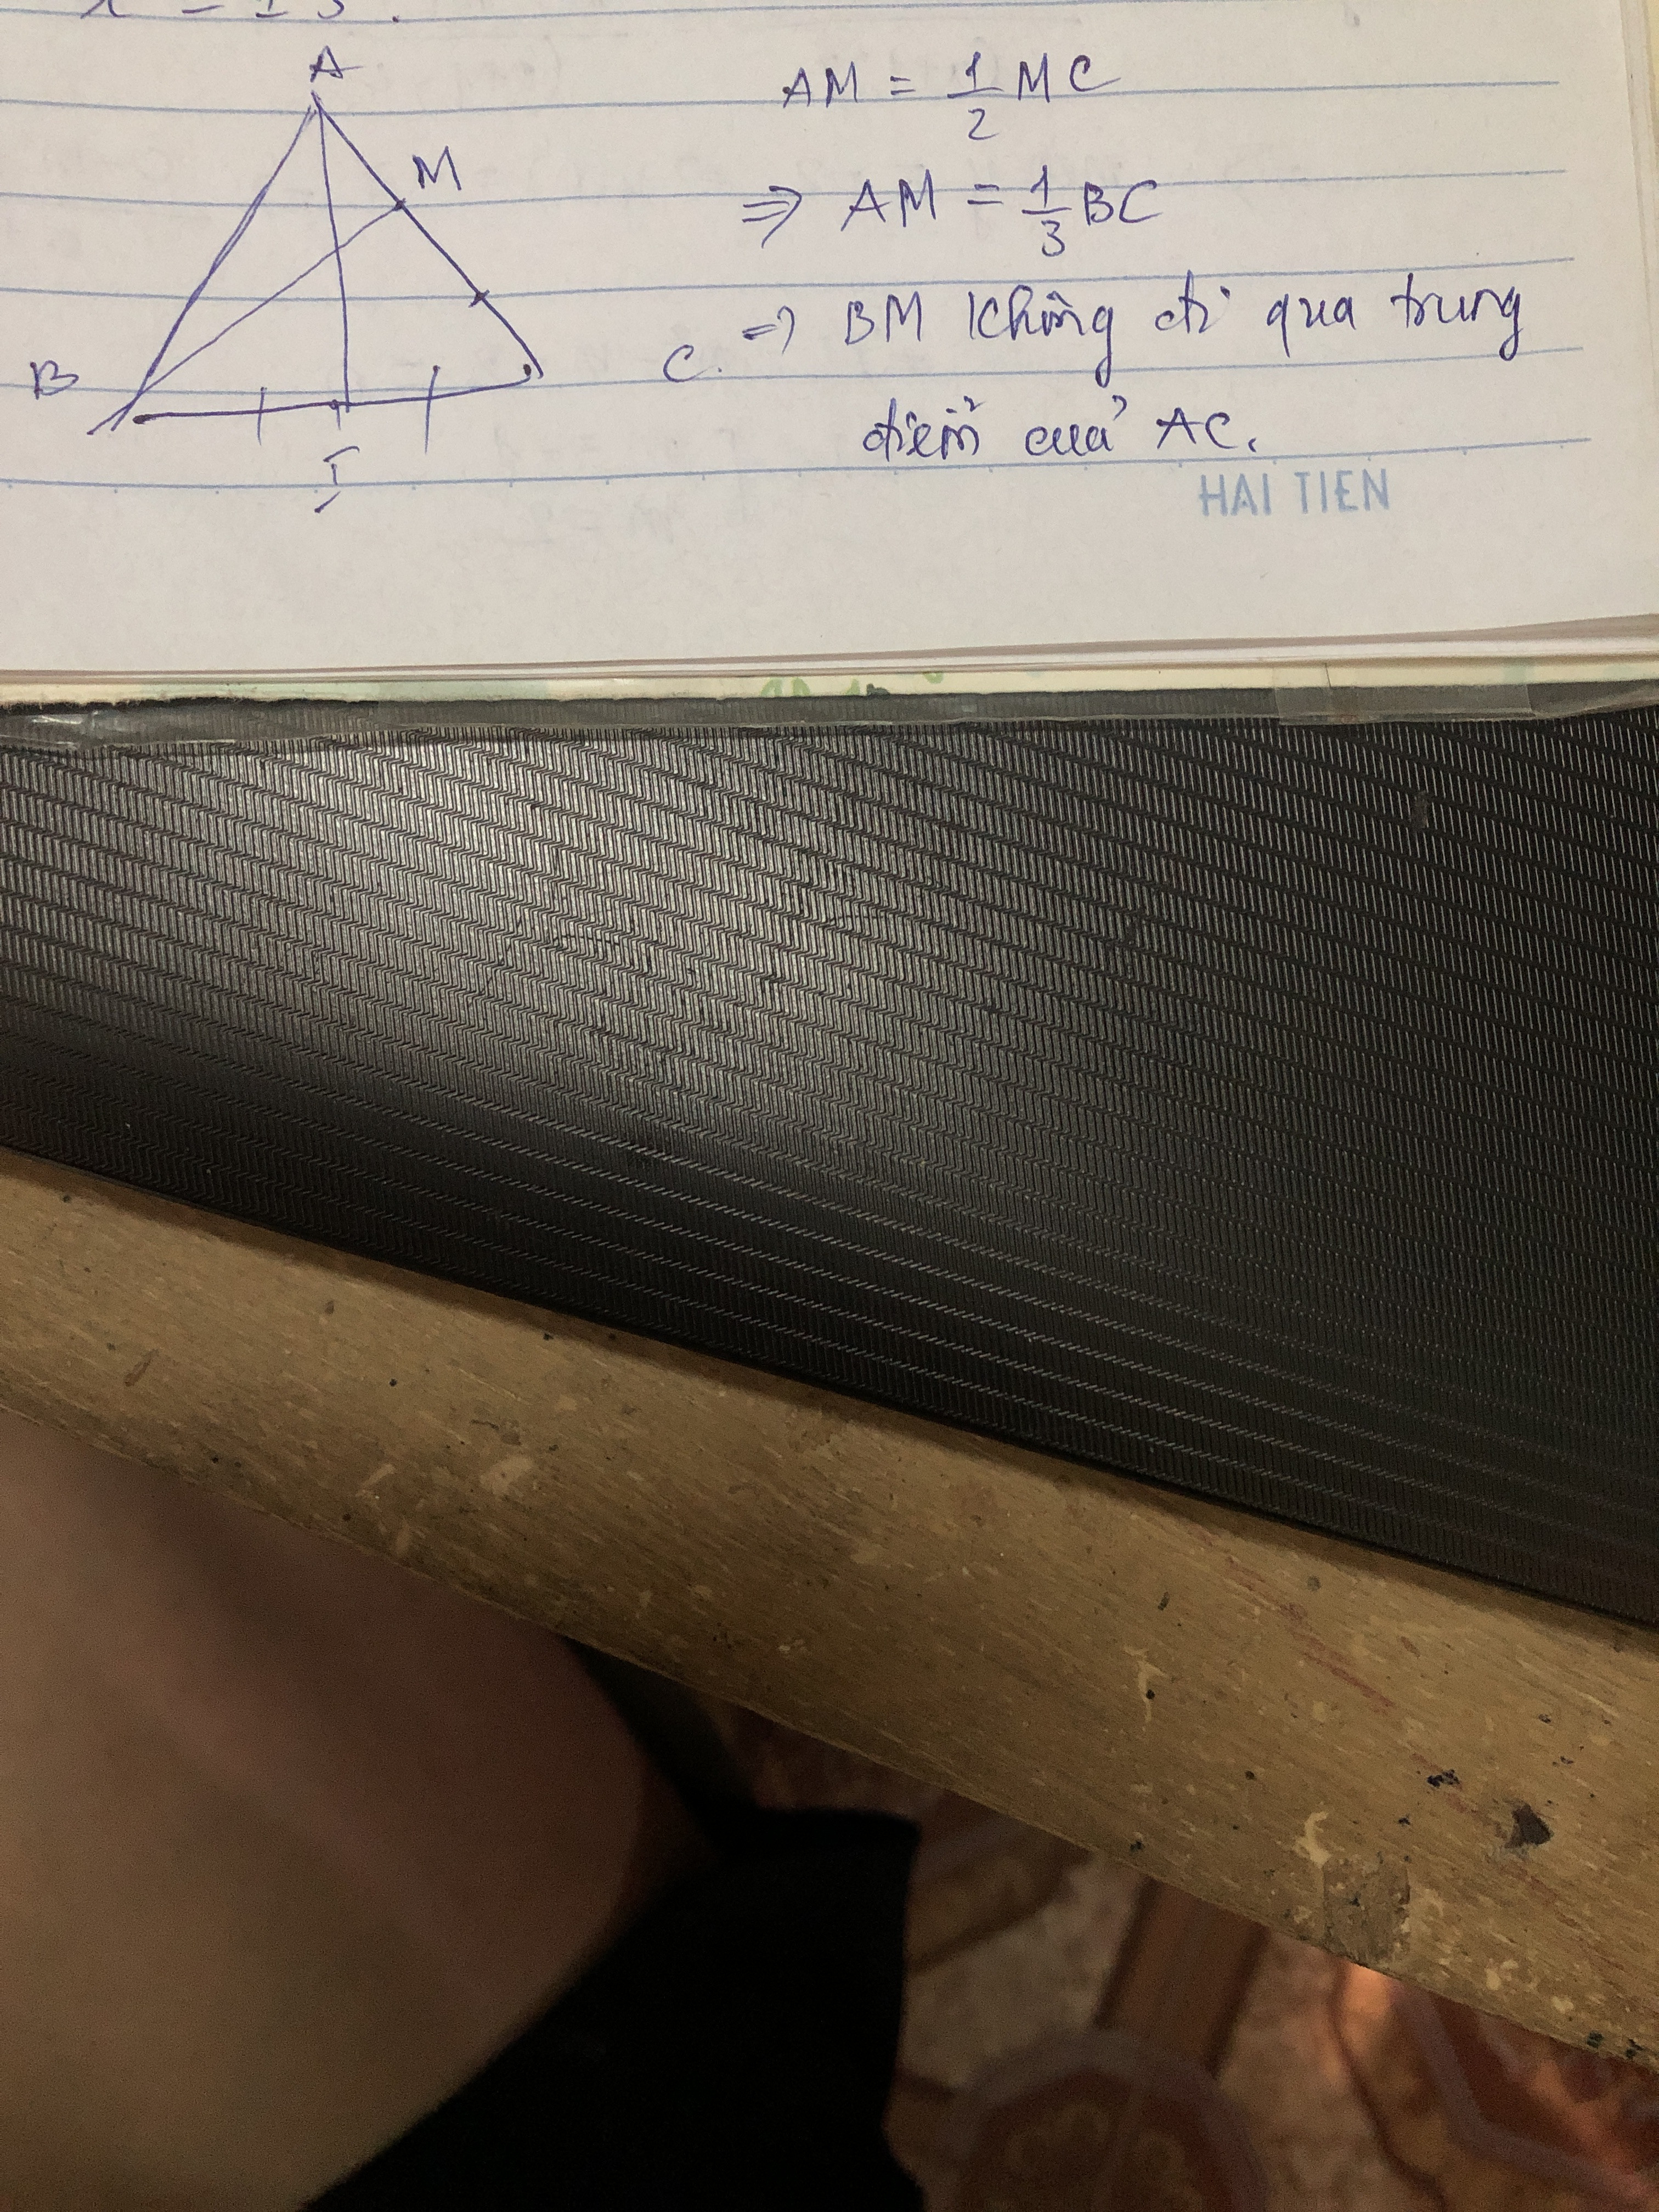 A
AM = 1/2 MC
M
⇒ AM = 1/3 BC
⇒ BM không đi qua trung
B
C.
điểm của AC.
I
HAI TIEN